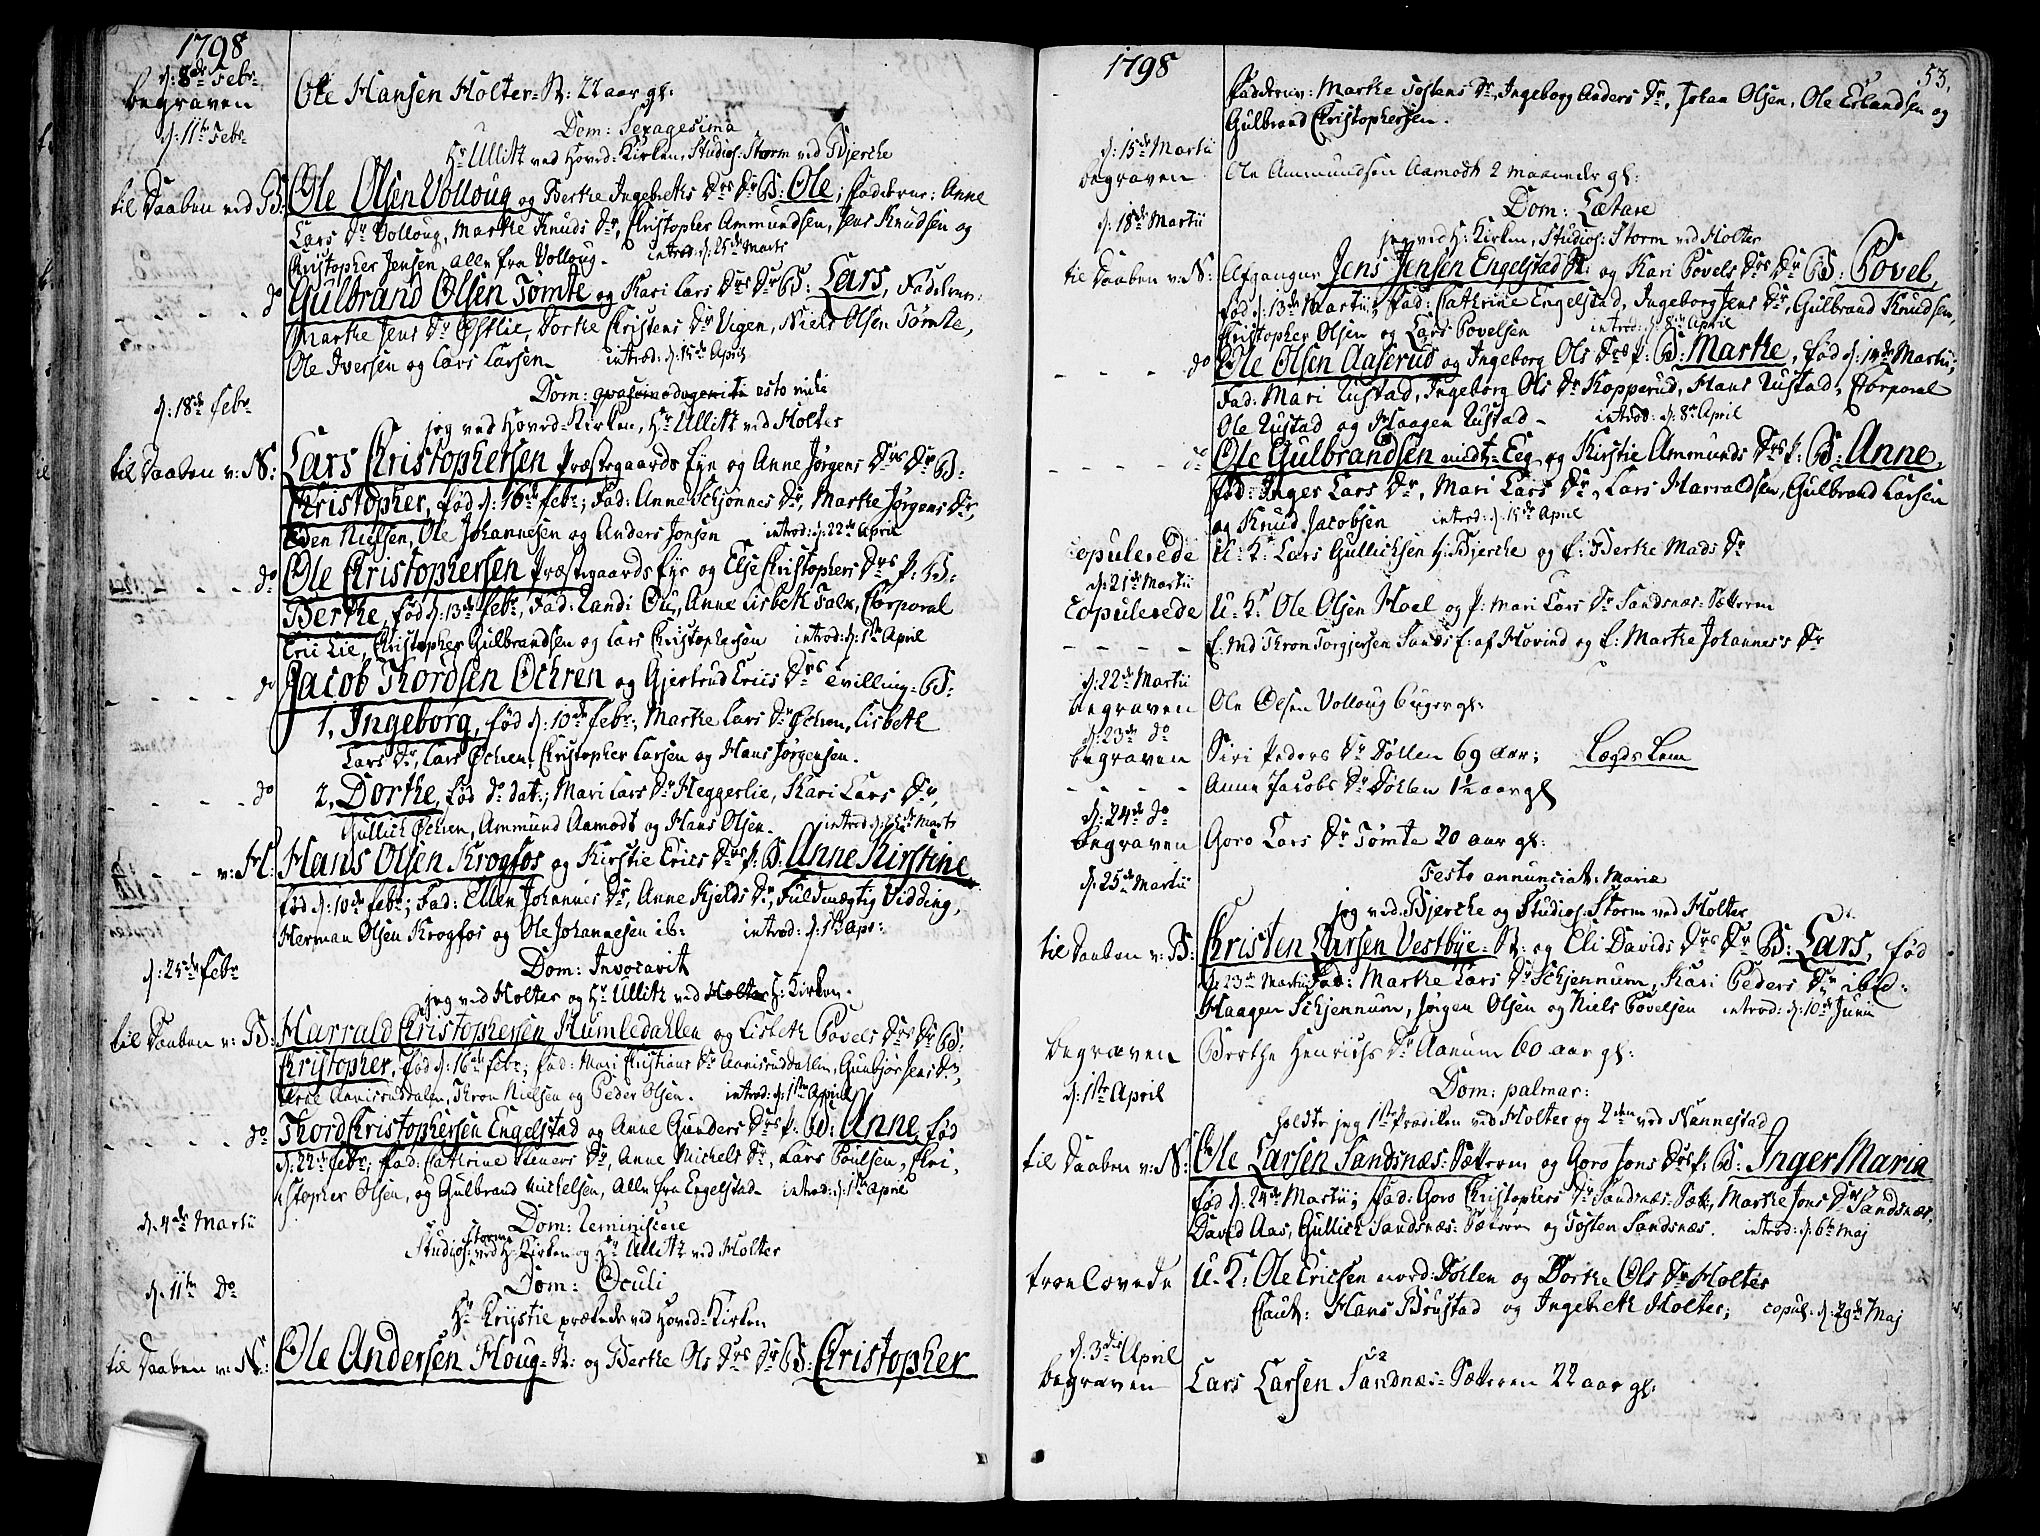 1798
d: 8de Febr.
begraven Ole Hansen Holter-N: 22 aar gl:
d: 11te Febr.
Dom: Sexagesima
Hr Ullitz ved Hoved-Kirken, Studios: Storm ved Bjerche
til Daaben ved B: Ole Olsen Volloug og Berthe Ingebreths Drs Dr B: Ole; Fadderne: Anne
Lars Dr Volloug, Marthe Knuds Dr, Christopher Ammundsen, Jens Knudsen og
Christopher Jensen, alle fra Volloug. introd: d: 25de Marts
do Gulbrand Olsen Tømte og Kari Lars Drs Dr B: Lars, Fadderne:
Marthe Jens Dr Østlie, Dorthe Christens Dr Vigen, Niels Olsen Tømte,
Ole Iversen og Lars Larsen. introd: d: 15de April
Dom: esto mihi
d: 18de Febr.
jeg ved Hoved-Kirken, Hr Ullitz ved Holter
til Daaben v: N: Lars Christophersen Præstegaards Eye og Anne Jørgens Drs Dr B:
Christopher, fød d: 16de febr; Fad: Anne Schjønnes Dr, Marthe Jørgens Dr,
Eden Nielsen, Ole Johannesen og Anders Jonsen introd: d: 22de April
do Ole Christophersen Præstegaards Eye og Else Christophers Drs P: B:
Berthe, fød d: 13de febr, Fad: Randi Ou, Anne Lisbeth Falk, Corporal
Eric Lie, Christopher Gulbrandsen og Lars Christophersen introd: d: 1ste April
do Jacob Thordsen Ochren og Gjertrud Erics Drs Tvilling-B:
1, Ingeborg, fød d: 10de febr; Marthe Lars Dr Ochren, Lisbeth
Lars Dr, Lars Ochren, Christopher Larsen og Hans Jørgensen.
do 2, Dorthe, fød do dat; Mari Lars Dr Heggerlie, Kari Lars Dr,
Gullich Ochren, Ammund Aamodt og Hans Olsen. introd: d: 25de Marts
v: H: Hans Olsen Krogfos og Kirstie Erics Drs P: B: Anne Kirstine
fød d: 10de febr; Fad: Ellen Johannes Dr, Anne Kjelds Dr, Fuldmægtig Vidding,
Herman Olsen Krogfos og Ole Johannesen ib: introd: d: 1ste Apr:
Dom: Invocavit
d: 25de febr
jeg ved Holter og Hr Ullitz ved Holter H: Kirken.
til Daaben v: B: Harrald Christophersen Humledahlen og Lisbeth Povels Drs Dr B:
Christopher, fød d: 16de febr; fad: Mari Christians Dr Aamisruddahlen, Gunbjør Jens Dr,
Aamisruddalen, Thron Nielsen og Peder Olsen. introd: d: 1ste April
do Thord Christophersen Engelstad og Anne Gunders Drs P: B: Anne, fød
d: 22de febr; fad: Cathrine Steners Dr, Anne Michels Dr, Lars Poulsen, Chri-
stopher Olsen, og Gulbrand Michelsen, alle fra Engelstad. introd: d: 1ste April
Dom: Reminiscere
d: 4de Martii
Studios: Storm ved H: Kirken og Hr Ullitz ved Holter
Dom: Oculi
d: 11te do
Hr Krystie prækede ved Hoved-Kirken
til Daaben v: N: Ole Andersen Houg-N: og Berthe Ols Drs Dr B: Christopher
1798
53.
Fadderne: Marthe Tostens Dr, Ingeborg Anders Dr, Johan Olsen, Ole Erlandsen og
Gulbrand Christophersen.
d: 15de Martii
begraven Ole Ammundsen Aamodt 2 maaneder gl:
d: 18de Martii
Dom: Lætare
jeg ved H: Kirken, Studios: Storm ved Holter
til Daaben v: N: Afgangne Jens Jensen Engelstad N: og Kari Povels Drs Dr B: Povel,
fød d: 13de Martii; Fad: Cathrine Engelstad, Ingeborg Jens Dr, Gulbrand Knudsen,
Christopher Olsen og Lars Povelsen introd: d: 8de April
do Ole Olsen Aaserud og Ingeborg Ols Drs P: B: Marthe, fød d: 14de Martii;
Fad: Mari Rustad, Ingeborg Ols Dr Kopperud, Hans Rustad, Corporal
Ole Rustad og Haagen Rustad. introd: d: 8de April
do Ole Gulbrandsen midt-Eeg og Kirstie Ammunds Drs P: B: Anne,
fød: Inger Lars Dr, Mari Lars Dr, Lars Harraldsen, Gulbrand Larsen
og Knud Jacobsen introd: d: 15de April
copulerede U: K: Lars Gullichsen H: Bjerche og E: Berthe Mads Dr
d: 21de Martii
Copulerede U: K: Ole Olsen Hoel og P: Mari Lars Dr Sandsnæs-Sætteren
E: Md Thron Torgjersen Sands E: af Hovind og E: Marthe Johannes's Dr
d: 22de Martii
begraven Ole Olsen Volloug 6 uger gl:
d: 23de do
begraven Siri Peders Dr Døhlen 69 aar; Lægds Lem
Anne Jacobs Dr Døhlen 1½ aar gl
d: 24de do
begraven Goro Lars Dr Tømte 20 aar gl:
d: 25de Martii
Festo annunciat: Mariæ
jeg ved Bjerche og Studios: Storm ved Holter
til Daaben v: B: Christen Larsen Vestbye-N: og Eli Davids Drs Dr B: Lars, fød
d: 23de Martii Fad: Marthe Lars Dr Schjennum, Kari Peders Dr ibd:
Haagen Schjennum, Jørgen Olsen og Niels Povelsen introd: d: 10de Junii
begraven Berthe Henrichs Dr Aanum 60 aar gl:
d: 1ste April
Dom: palmar:
holdte jeg 1ste Prædiken ved Holter og 2den ved Nannestad
til Daaben v: N: Ole Larsen Sandsnæs-Sætteren og Goro Jons Drs P: B: Inger Maria
fød d: 24de Martii; fad: Goro Christophers Dr Sandsnæs-Sætt, Marthe Jons Dr Sandsnæs,
David Aas, Gullich Sandsnæs-Sætteren og Tosten Sandsnæs. introd: d: 6te Maj
troelovede U: K: Ole Ericsen nord: Døhlen og Dorthe Ols Dr Holter
Caut: Hans Brustad og Ingebreth Holter; copul: d: 29de Maj
d: 3die April
begraven Lars Larsen Sandnæs-Sætteren 22 aar gl: